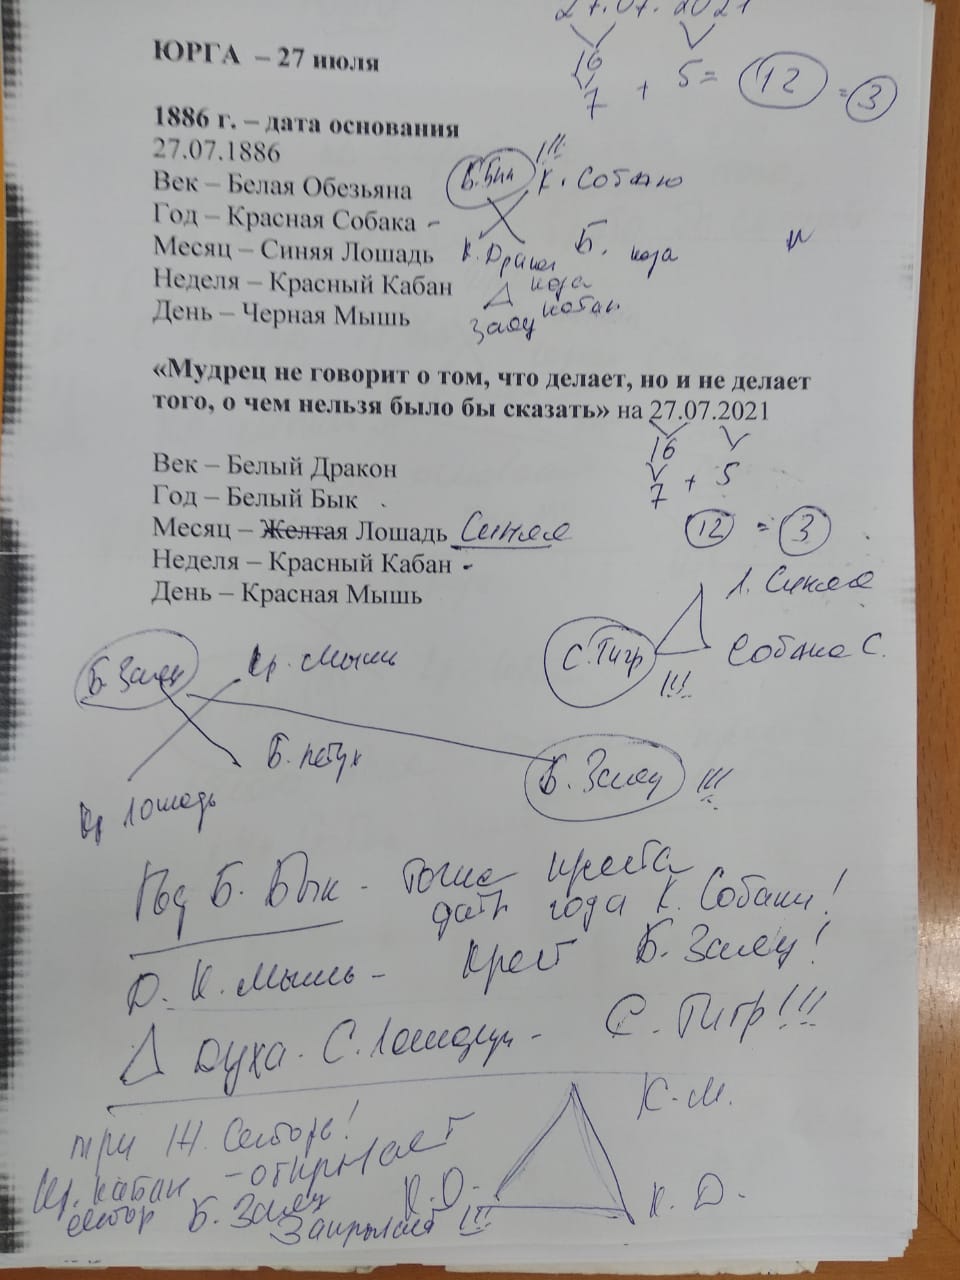 27.07.2021
ЮРГА – 27 июля
16
7 + 5 = 12 = 3
1886 г. – дата основания
27.07.1886
Век – Белая Обезьяна
Б. Бык !!! К. Собаки
Год – Красная Собака -
Месяц – Синяя Лошадь
К. Дракон Б. коза
Неделя – Красный Кабан
Δ коза
кабан
День – Черная Мышь
заяц
«Мудрец не говорит о том, что делает, но и не делает
того, о чем нельзя было бы сказать» на 27.07.2021
16
7 + 5
Век – Белый Дракон
Год – Белый Бык
Месяц – Желтая Лошадь Синяя
12 = 3
Неделя – Красный Кабан -
День – Красная Мышь
Л. Синяя
С. Тигр
Собака С.
!!!
Б. Заяц
Кр. Мышь
Б. петух
Кр лошадь
Б. Заяц !!!
Год Б. Бык - точка креста
дать года К. Собаки!
Д. К. Мышь - крест Б. Заяц!
Δ Духа. С. Лошади - С. Тигр!!!
три Ж. Сектора!
К. М.
Кр. Кабан - открывает
сектор Б. Заяц
Закрывает !!!
К. О.
К. Д.